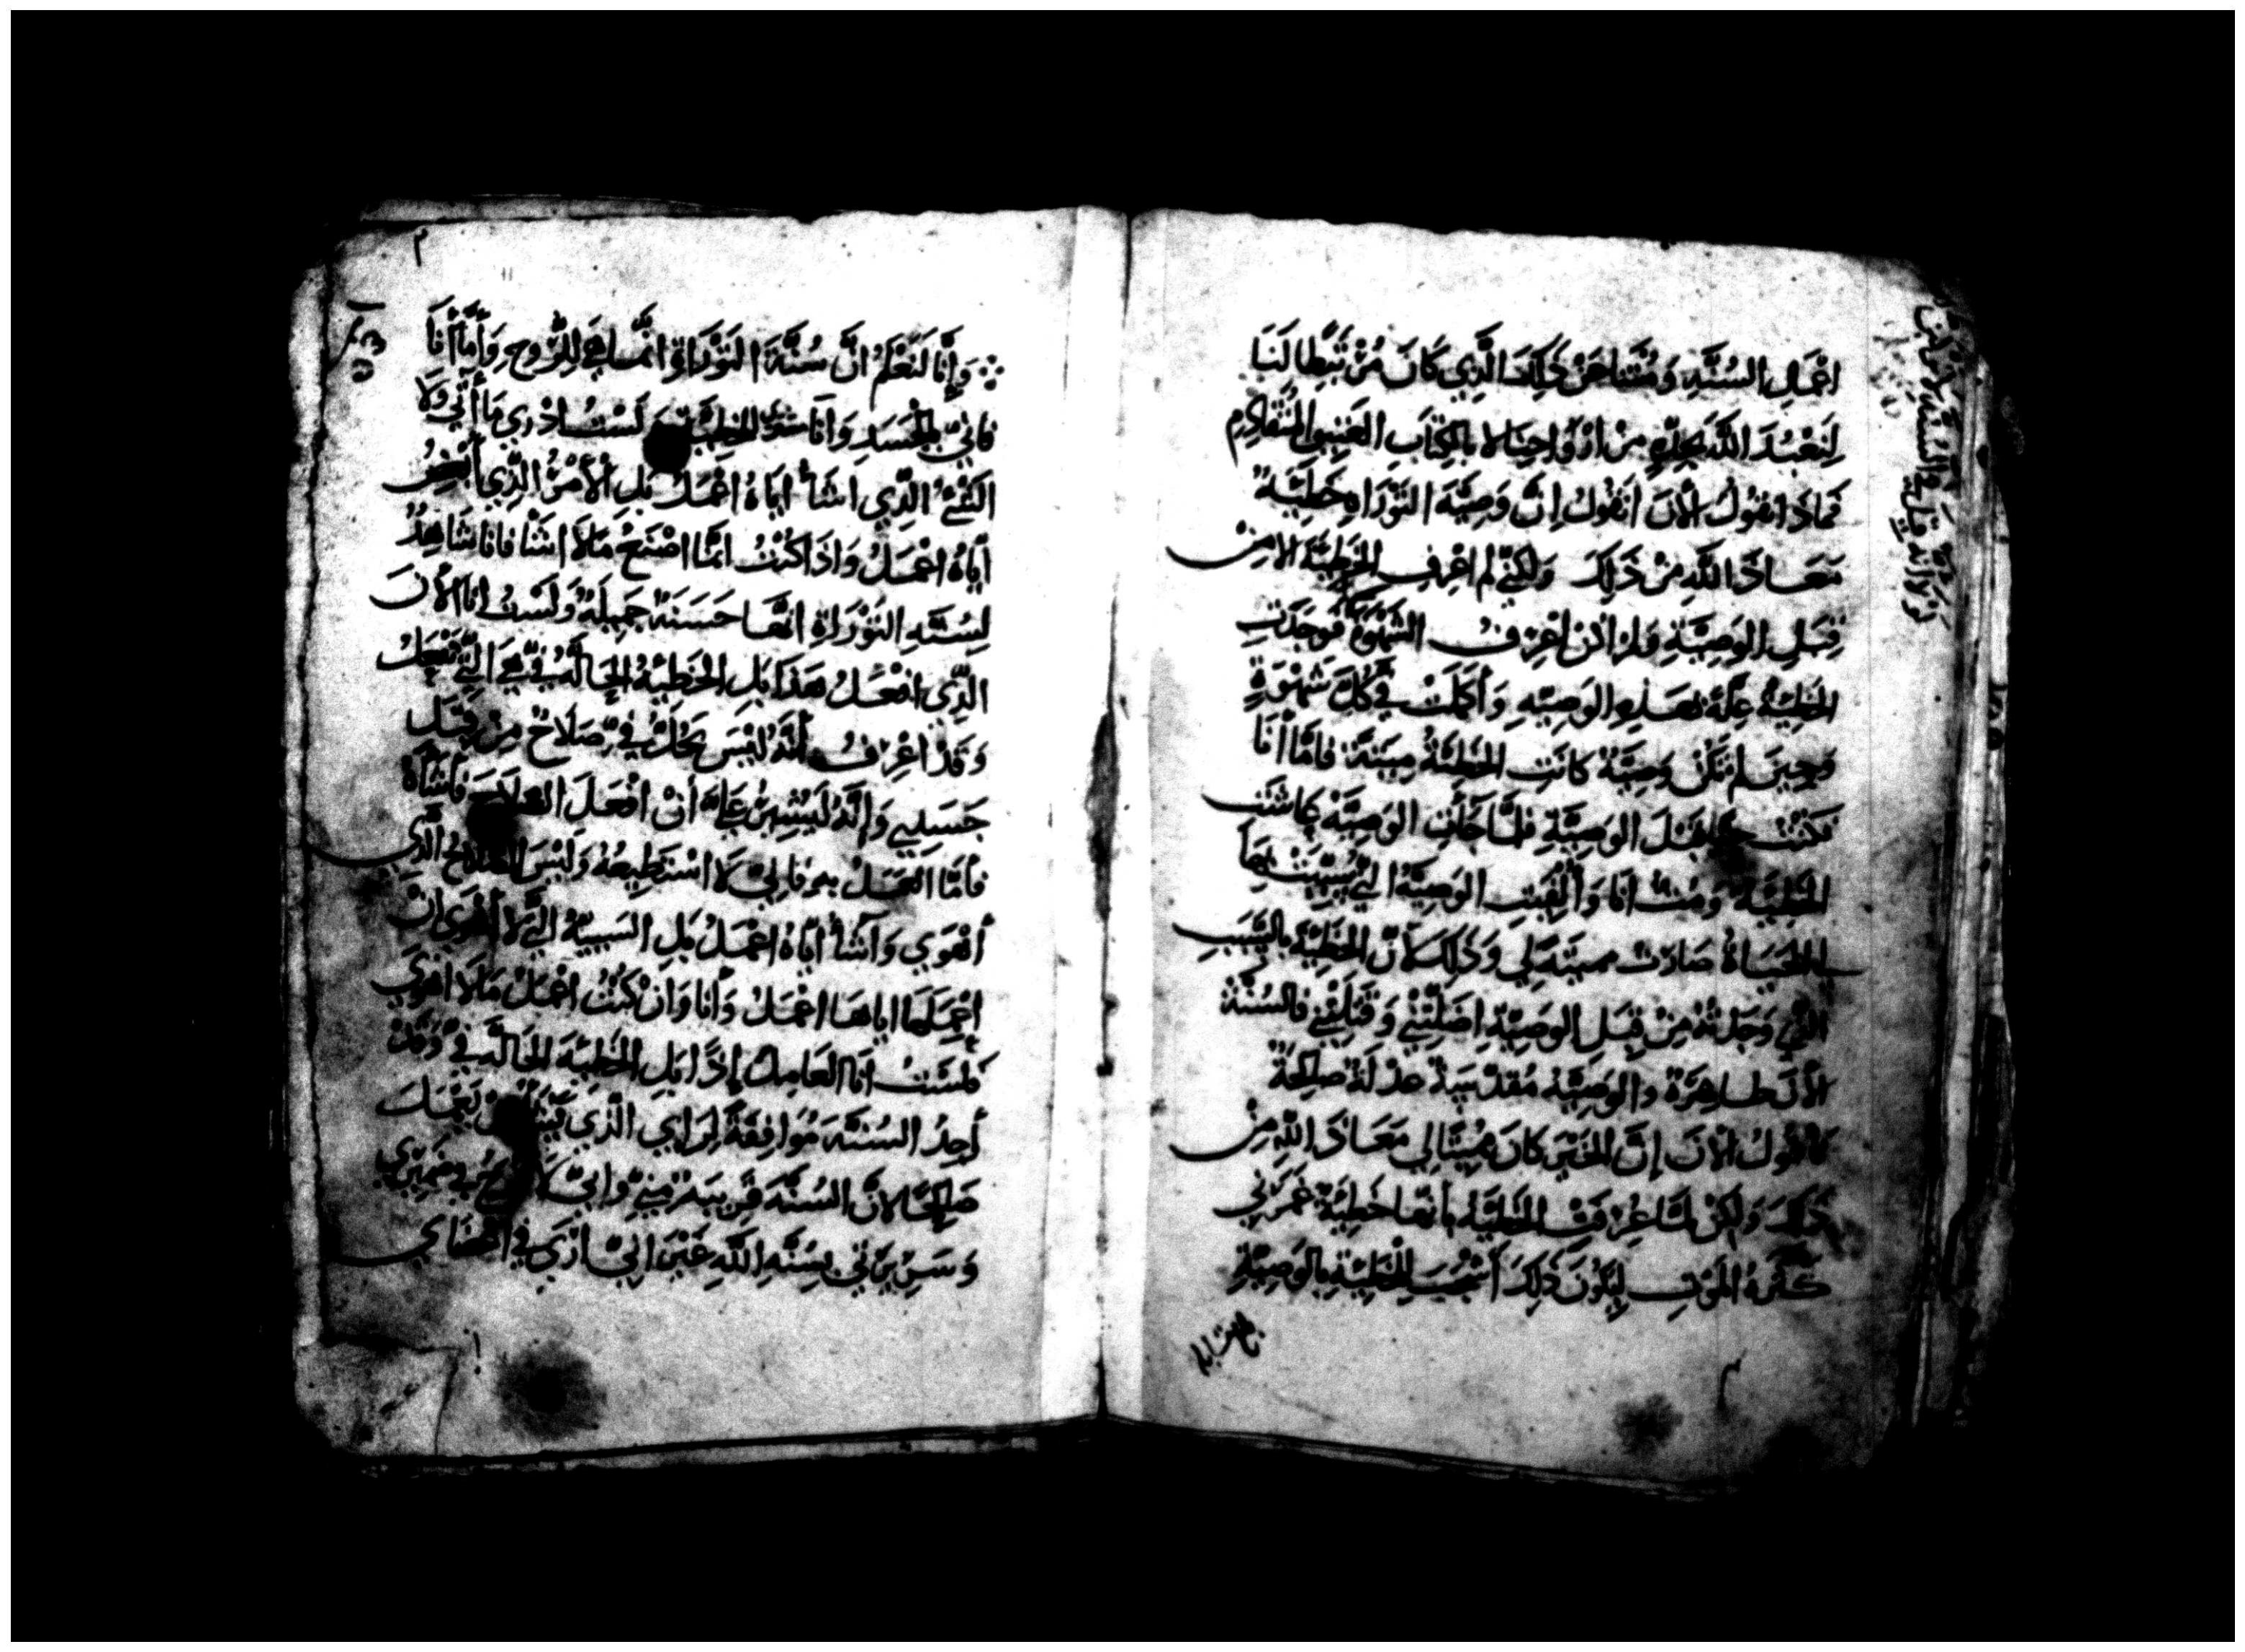 اعْمَالِ السُنَّةِ وَمُتْنَا عَنْ ذَلِكَ الَّذِي كَانَ مُرْتَبِطًا لَنَا
لِنَعْبُدَ اللَّه بِجِدَّةٍ مِنْ ارْوَاحِنَا لا بِالكِتَابِ العَتِيقِ المُتَقَادِمِ
فَمَاذَا نقُولُ الأنَ انَقُولُ انَّ وَصِيَّة التَوْرَاهِ خَطِيَّةٌ
مَعَاذَ اللَّهِ مِنْ ذَلِكَ وَلكِنّي لم اعْرِفِ الخَطِيَّة الا مِنْ
قِبَلِ الوَصِيَّةِ وَلم اكن اعْرِفُ الشَهْوَةَ فوَجَدَتِ
الخَطِيَّةُ عِلَّةً بهَذِهِ الوَصِيّهِ وَأكمَلَتْ فيَّ كُلَّ شَهْوَةٍ
وَحِينَ لم تَكُنْ وَصِيَّةٌ كانَتِ الخَطِيَّةُ مَيتَةً فامَّا أنَا
فكُنْتُ حيًّا قبْلَ الوَصِيَّةِ فلمَّا جَأتِ الوَصِيَّةُ عَاشَتِ
الخَطِيَّةُ وَمُتُّ انَا وَألْفِيَتِ الوَصِيَّةُ التي سُبّبَتْ لهَا
الحَيَاةُ صَارَتْ مميتَةً لي وَذَلِكَ لأنَّ الخَطِيَّةَ بالسَّبَبِ
الَّذِي وَجَدَتْهُ مِنْ قِبَلِ الوَصِيَّةِ اضَلَّتْنِي وَقَتَلَتْنِي فالسُنَّةُ
الأنَ طَاهِرَةٌ والوَصِيَّةُ مُقدَّسَةٌ عدْلَةٌ صَالِحَةٌ
فاقُولُ الأنَ إنَّ الخَيْرَ كانَ مُمِيتًا لي مَعَاذَ اللَّهِ مِنْ
ذَلِكَ وَلكِنْ لمَّا عُرِفَتْ الخَطِيَّة بأنهَا خَطِيَّةٌ غَمَرَتْنِي
كثرَةُ المَوْتِ لِيَكُونَ ذَلِكَ أشْجَبَ لِلْخَطِيَّةِ بالوَصِيَّةِ
وَإنَّا لَنَعْلَمُ انَّ سُنَّةَ التَوْرَاةِ انَّمَا هِيَ لِلرُّوحِ وَأمَّا أنَا
فانّي بالجَسَدِ وَأنَا للخطِيَّة لَسْتُ ادْرِي مَا أتِي وَلا
الشَّيءُ الَّذِي اشَأُ ايَاهُ اعْمَلُ بَلِ الأمْرُ الَّذِي أبْغِضُ
ايَاهُ اعْمَلُ وَاذَا كُنْتُ انمَّا اصْنَعُ مَا لا اشَأ فانا شَاهِدٌ
لِسُنَّةِ التَوْرَاةِ انَّهَا حَسَنَةٌ جَمِيلَةٌ وَلَسْتُ انا الأنَ
الَّذِي افْعَلُ هَذَا بَلِ الخَطِيَّةُ الحَالَّةُ فيَّ هِيَ الَّتِي تفْعَلُ
وَقَدْ اعْرِفُ أنَّهُ لَيْسَ يَحُلُّ فيَّ صَلَاحٌ مِنْ قِبَلِ
جَسَدِي وَإنَّهُ لَيَسِيرٌ عَلَيَّ أنْ افْعَلَ الصَلَاحَ فأشَأهُ
فأمَّا العَمَلُ بهِ فَاني لَا اسْتَطِيعُهُ وَلَيْسَ الصَّلاحُ الَّذِي
أهْوَي وَأشَأ ايَاهُ اعْمَلُ بَلِ السَيِّئةُ الَّتِي لا أهْوَي انْ
اعْمَلَهَا اياهَا اعْمَلُ وَأنَا وَانْ كُنْتُ اعْمَلُ مَا لا اهْوَي
فلَسْتُ أنَا العَامِلَ إذًا بَلِ الخَطِيَّةَ الحَالَّةَ فيَّ وَقَدْ
أجِدُ السُنَّةَ مُوَافِقَةً لِرَايي الَّذِي يَعْمَلَ
صَالِحًا لأنَّ السُنَّةَ قَرِيبَة مِنِّي وَانّي لا في ضَمِيري
وَسَرِيرَتي بسُنَّةِ اللَّهِ غَيْرَ انّي ارَي في اعْضَاي